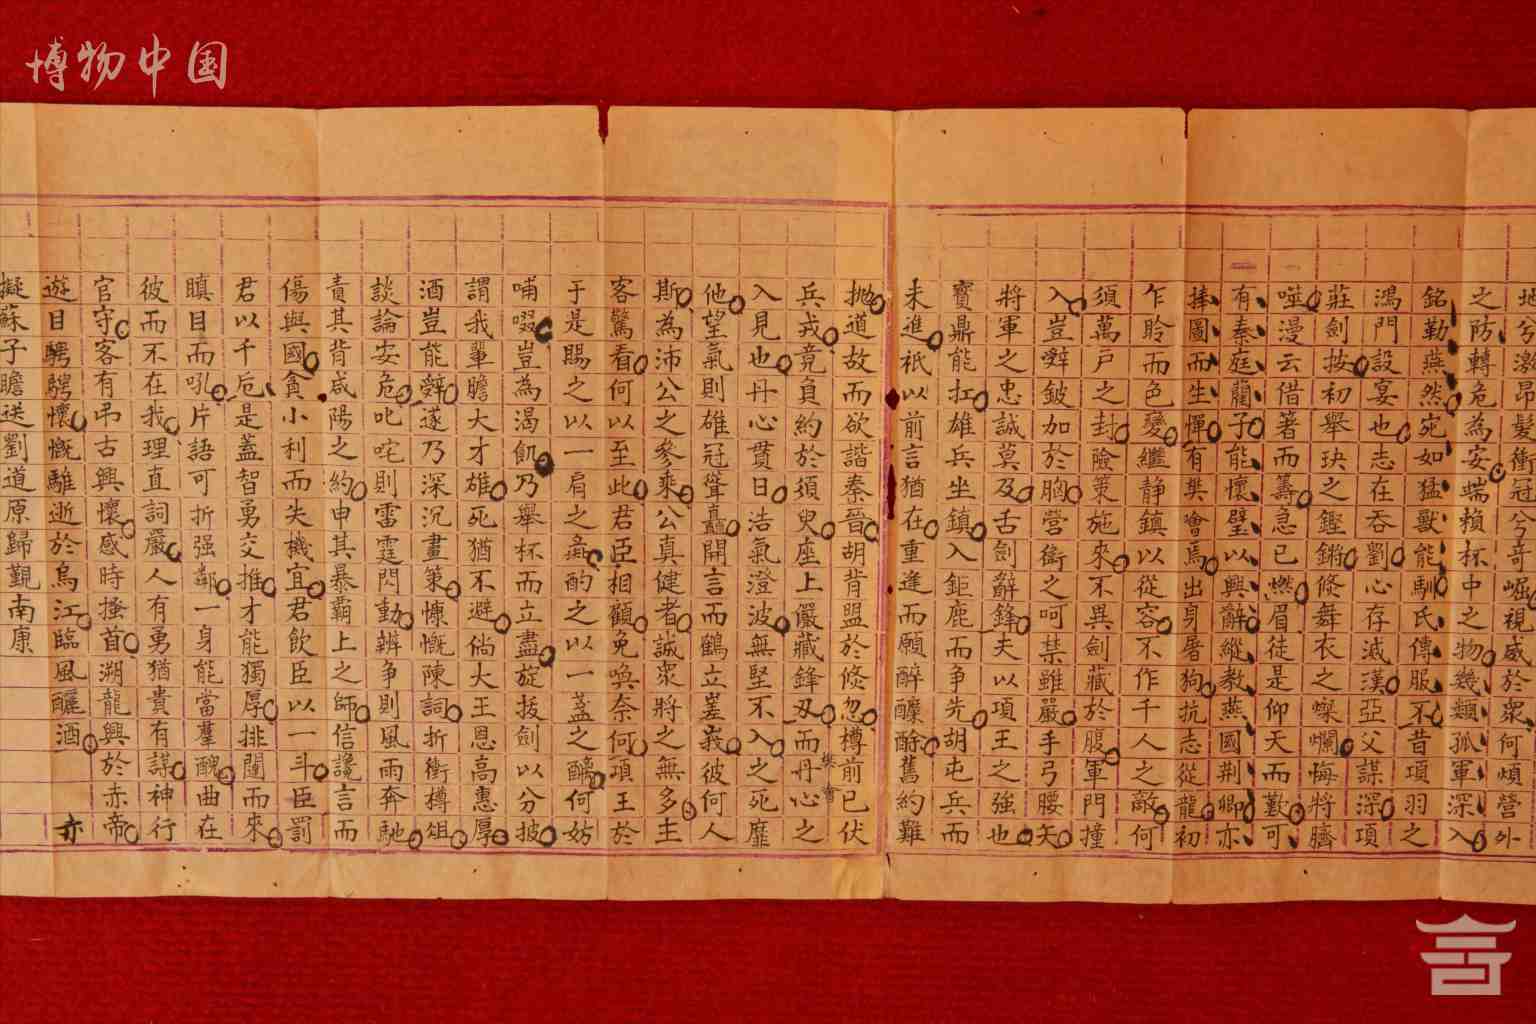 博物中国
坡兮激昂髮衝冠兮奇崛視威於衆何煩營外
之防轉危為安端賴杯中之物幾類孤軍深入
銘勒燕然宛如猛獸能馴氏傳服不昔項羽之
鴻門設宴也志在吞劉心存滅漢亞父謀深項
莊劍按初舉玦之鏗鏘倏舞衣之爛悔將臍
噬漫云借箸而籌急已燃眉徒是仰天而歎可
有秦庭藺子能懷璧以興辭縱教燕國荆卿亦
捧圖而生憚有樊噲焉出身屠狗抗志從龍初
乍聆而色變繼静鎮以從容不作千人之敵何
須萬戶之封險策施來不異劍藏於腹軍門撞
入豈辭鈹加於胸營衛之呵禁雖嚴手弓腰矢
將軍之忠誠莫及舌劍辭鋒夫以項王之強也
寶鼎能扛雄兵坐鎮入鉅鹿而争先胡屯兵而
未進祇以前言猶在重進而願醉醲酴舊約難
拋道故而欲諧秦晉胡背盟於倏忽樽前已伏
兵戎竟負約於須臾座上儼藏鋒刃而丹心之
樊噲
入見也丹心貫日浩氣澄波無堅不入之死靡
他望氣則雄冠聳矗開言而鶴立峩彼何人
斯為沛公之參乘公真健者誠衆將之無多主
客驚看何以至此君臣相顧免喚奈何項王於
于是賜之以一肩之彘酌之以一盞之醨何妨
哺啜豈為渴飢乃舉杯而立盡旋拔劍以分披
謂我輩膽大才雄死猶不避倘大王恩高惠厚
酒豈能辭遂乃深沉畫策慷慨陳詞折衝樽俎
談論安危叱咤則雷霆鬥動辨争則風雨奔馳
責其背咸陽之約申其暴霸上之師信讒言而
傷與國貪小利而失機宜君飲臣以一斗臣罰
君以千卮是蓋智勇交推才能獨厚排闥而來
瞋目而吼片語可折强鄰一身能當羣醜曲在
彼而不在我理直詞嚴人有勇猶貴有謀神行
官守客有弔古興懷感時搔首溯龍興於赤帝
遊目騁騁懷慨騅逝於烏江臨風釃酒 亦
擬蘇子瞻送劉道原歸覲南康